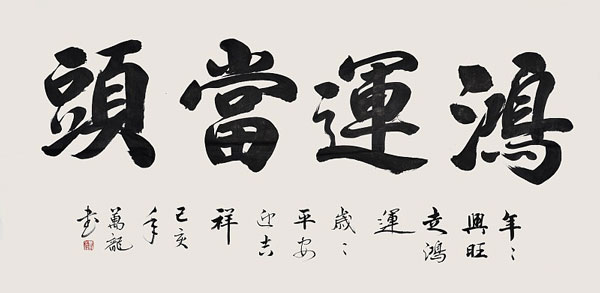 鴻運當頭
年〻
興旺
走鴻
運
歲〻
平安
迎吉
祥
己亥
年
萬龍
書